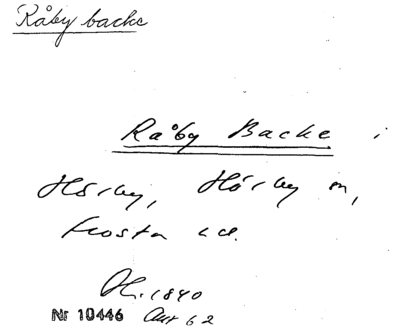 Råby backe
Råby Backe i
Hörby, Hörby sn,
Frosta hd.
1840
Nr 10446 62